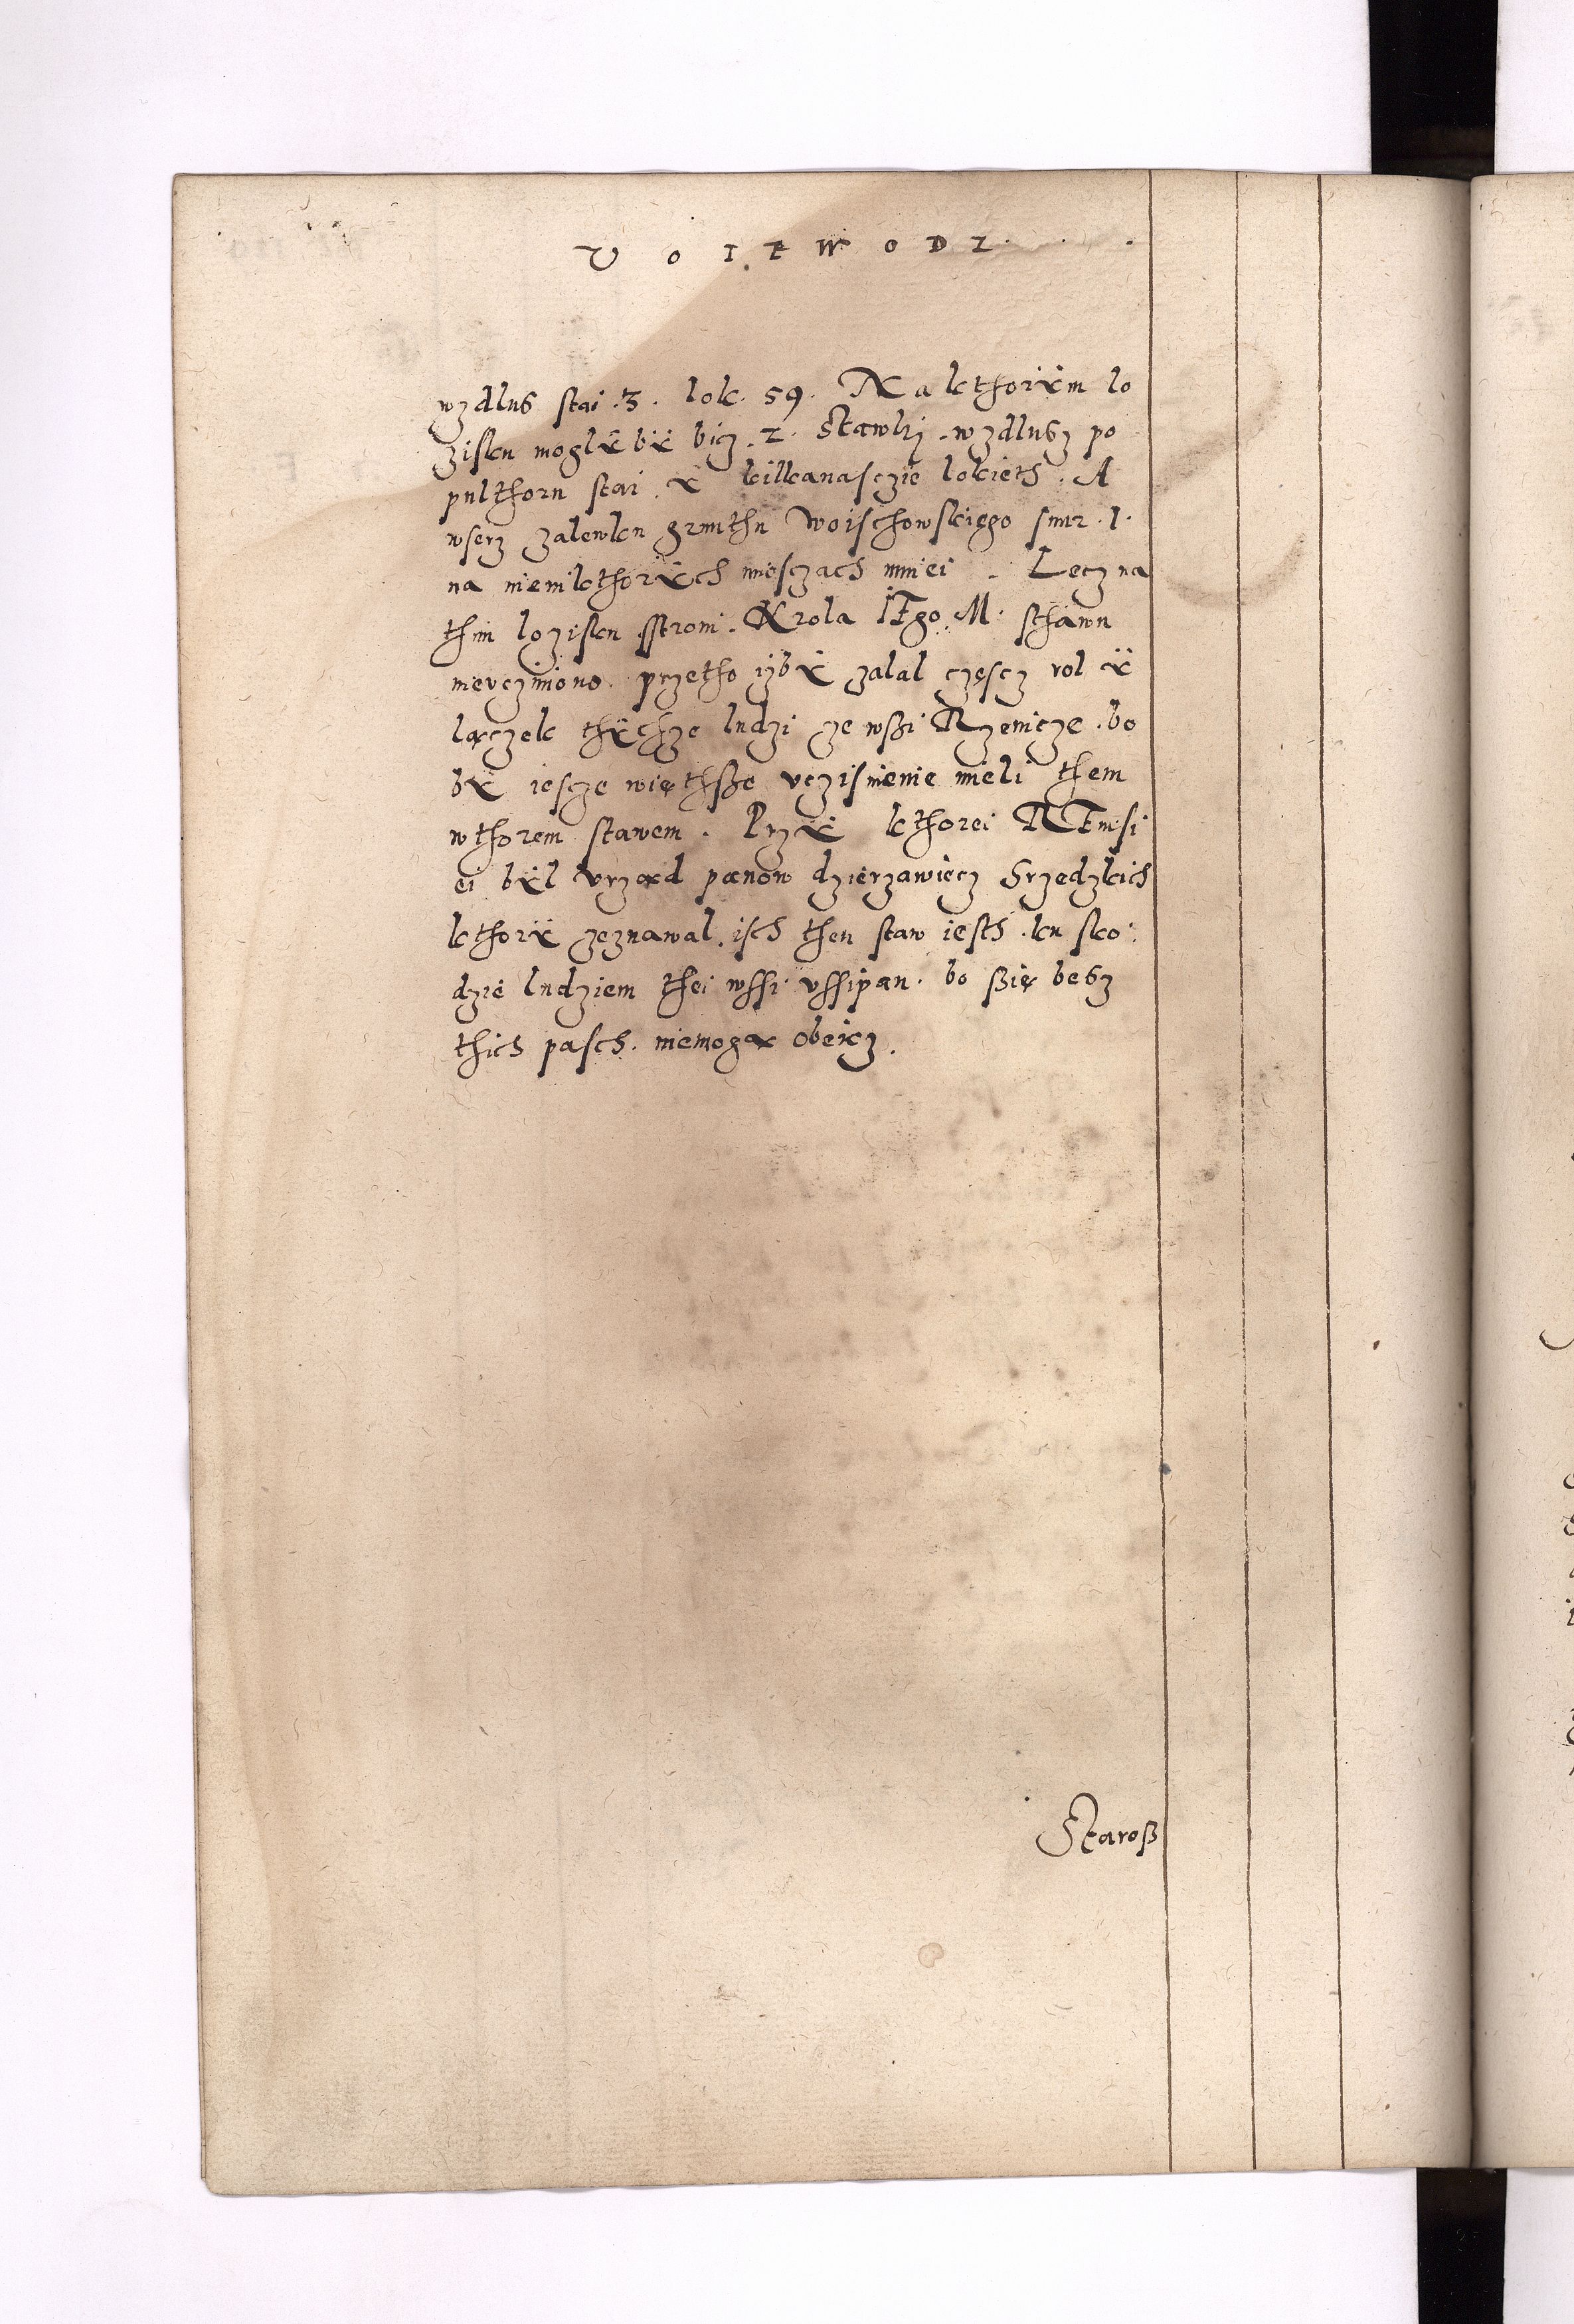 VOIEWODZ.
wzdlus stai .3. lok. 59. Na kthorÿm lo
zisku moglÿ bÿ bicz .2. Stawki . wzdlusz po
pulthoru stai . ÿ kilkanasczie lokieth . A
wserz zalewku grunthu Woischowskiego snur .1.
na niemkthorÿch miesczach mniei . Lecz na
thim lozisku stroni . Krola IEgo . M. sthawu
nieuczyniono . przetho izbÿ zalal częscz rol ÿ
lączek thÿchze ludzi ze wßi Rzeniczę . bo
bÿ iescze więthße vczisnienie mieli them
wthorem stawem . Przÿ kthorei REuisi
ei bÿl vrząd panow dzierzawiecz Srzedzkich
kthorÿ zeznawal . isch then staw iesth . ku sko
dzie ludziem thei wssi . vssipan . bo ßię besz
thich pasch . niemogą obeicz .
Staroß